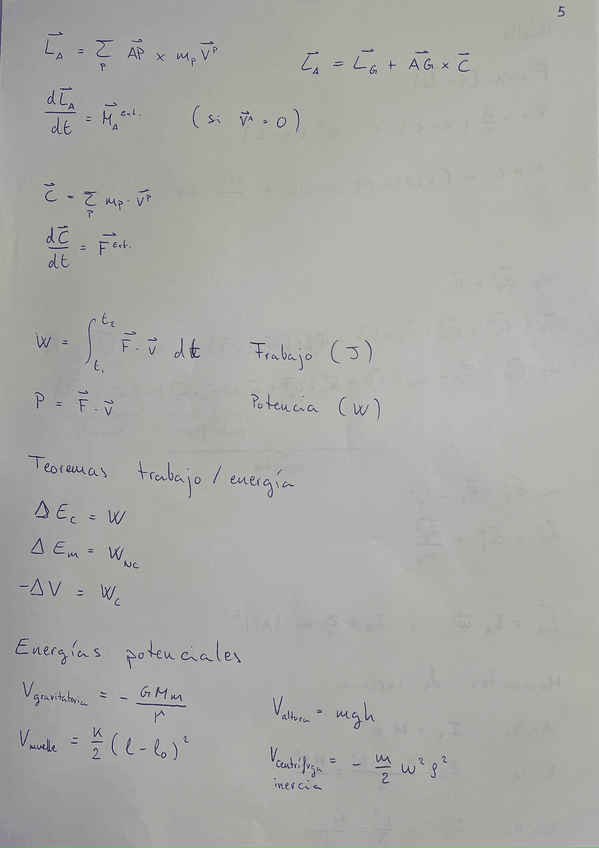 5
L⃗_A = Σ_P A⃗P × m_P v⃗^P    L⃗_A = L⃗_G + A⃗G × C⃗
dL⃗_A/dt = M⃗_A^Ext. (si v⃗^A = 0)
C⃗ = Σ_P m_P · v⃗^P
dC⃗/dt = F⃗^Ext.
W = ∫_{t₁}^{t₂} F⃗ · v⃗ dt    Trabajo (J)
P = F⃗ · v⃗    Potencia (W)
Teoremas trabajo / energía
Δ E_c = W
Δ E_m = W_NC
-ΔV = W_c
Energías potenciales
V_gravitatoria = - GMm/r    V_altura = mgh
V_muelle = k/2 (l - l₀)²    V_centrífuga inercia = - m/2 ω² ρ²